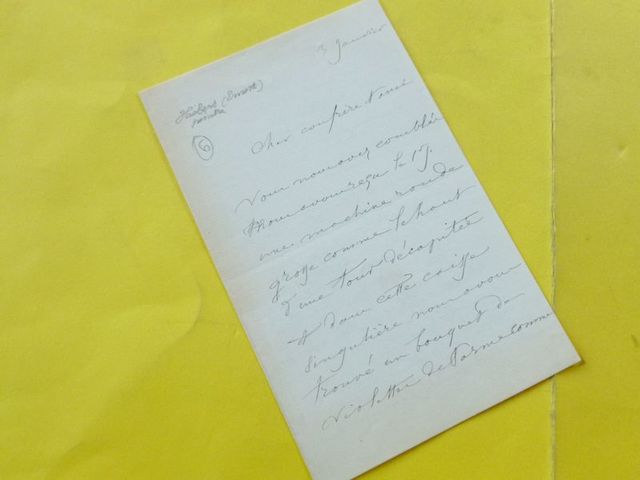 3 Janvier
Hébert (Ernest)
peintre
6
Cher confrère et ami
Vous nous avez comblés
Nous avons reçu le 1er j.
une machine ronde
grosse comme le haut
d'une tour décapitée
et dans cette caisse
singulière nous avons
trouvé un bouquet de
violettes de Parme comme